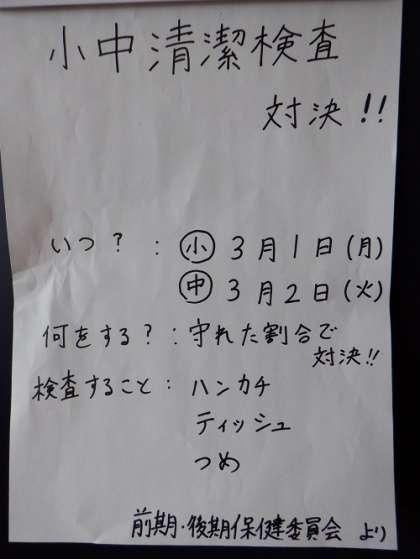 小中清潔検査
対決!!
いつ? : ㊥小 3月1日(月)
㊥ 3月2日(火)
何をする? : 守れた割合で
対決!!
検査すること : ハンカチ
ティッシュ
つめ
前期・後期保健委員会 より